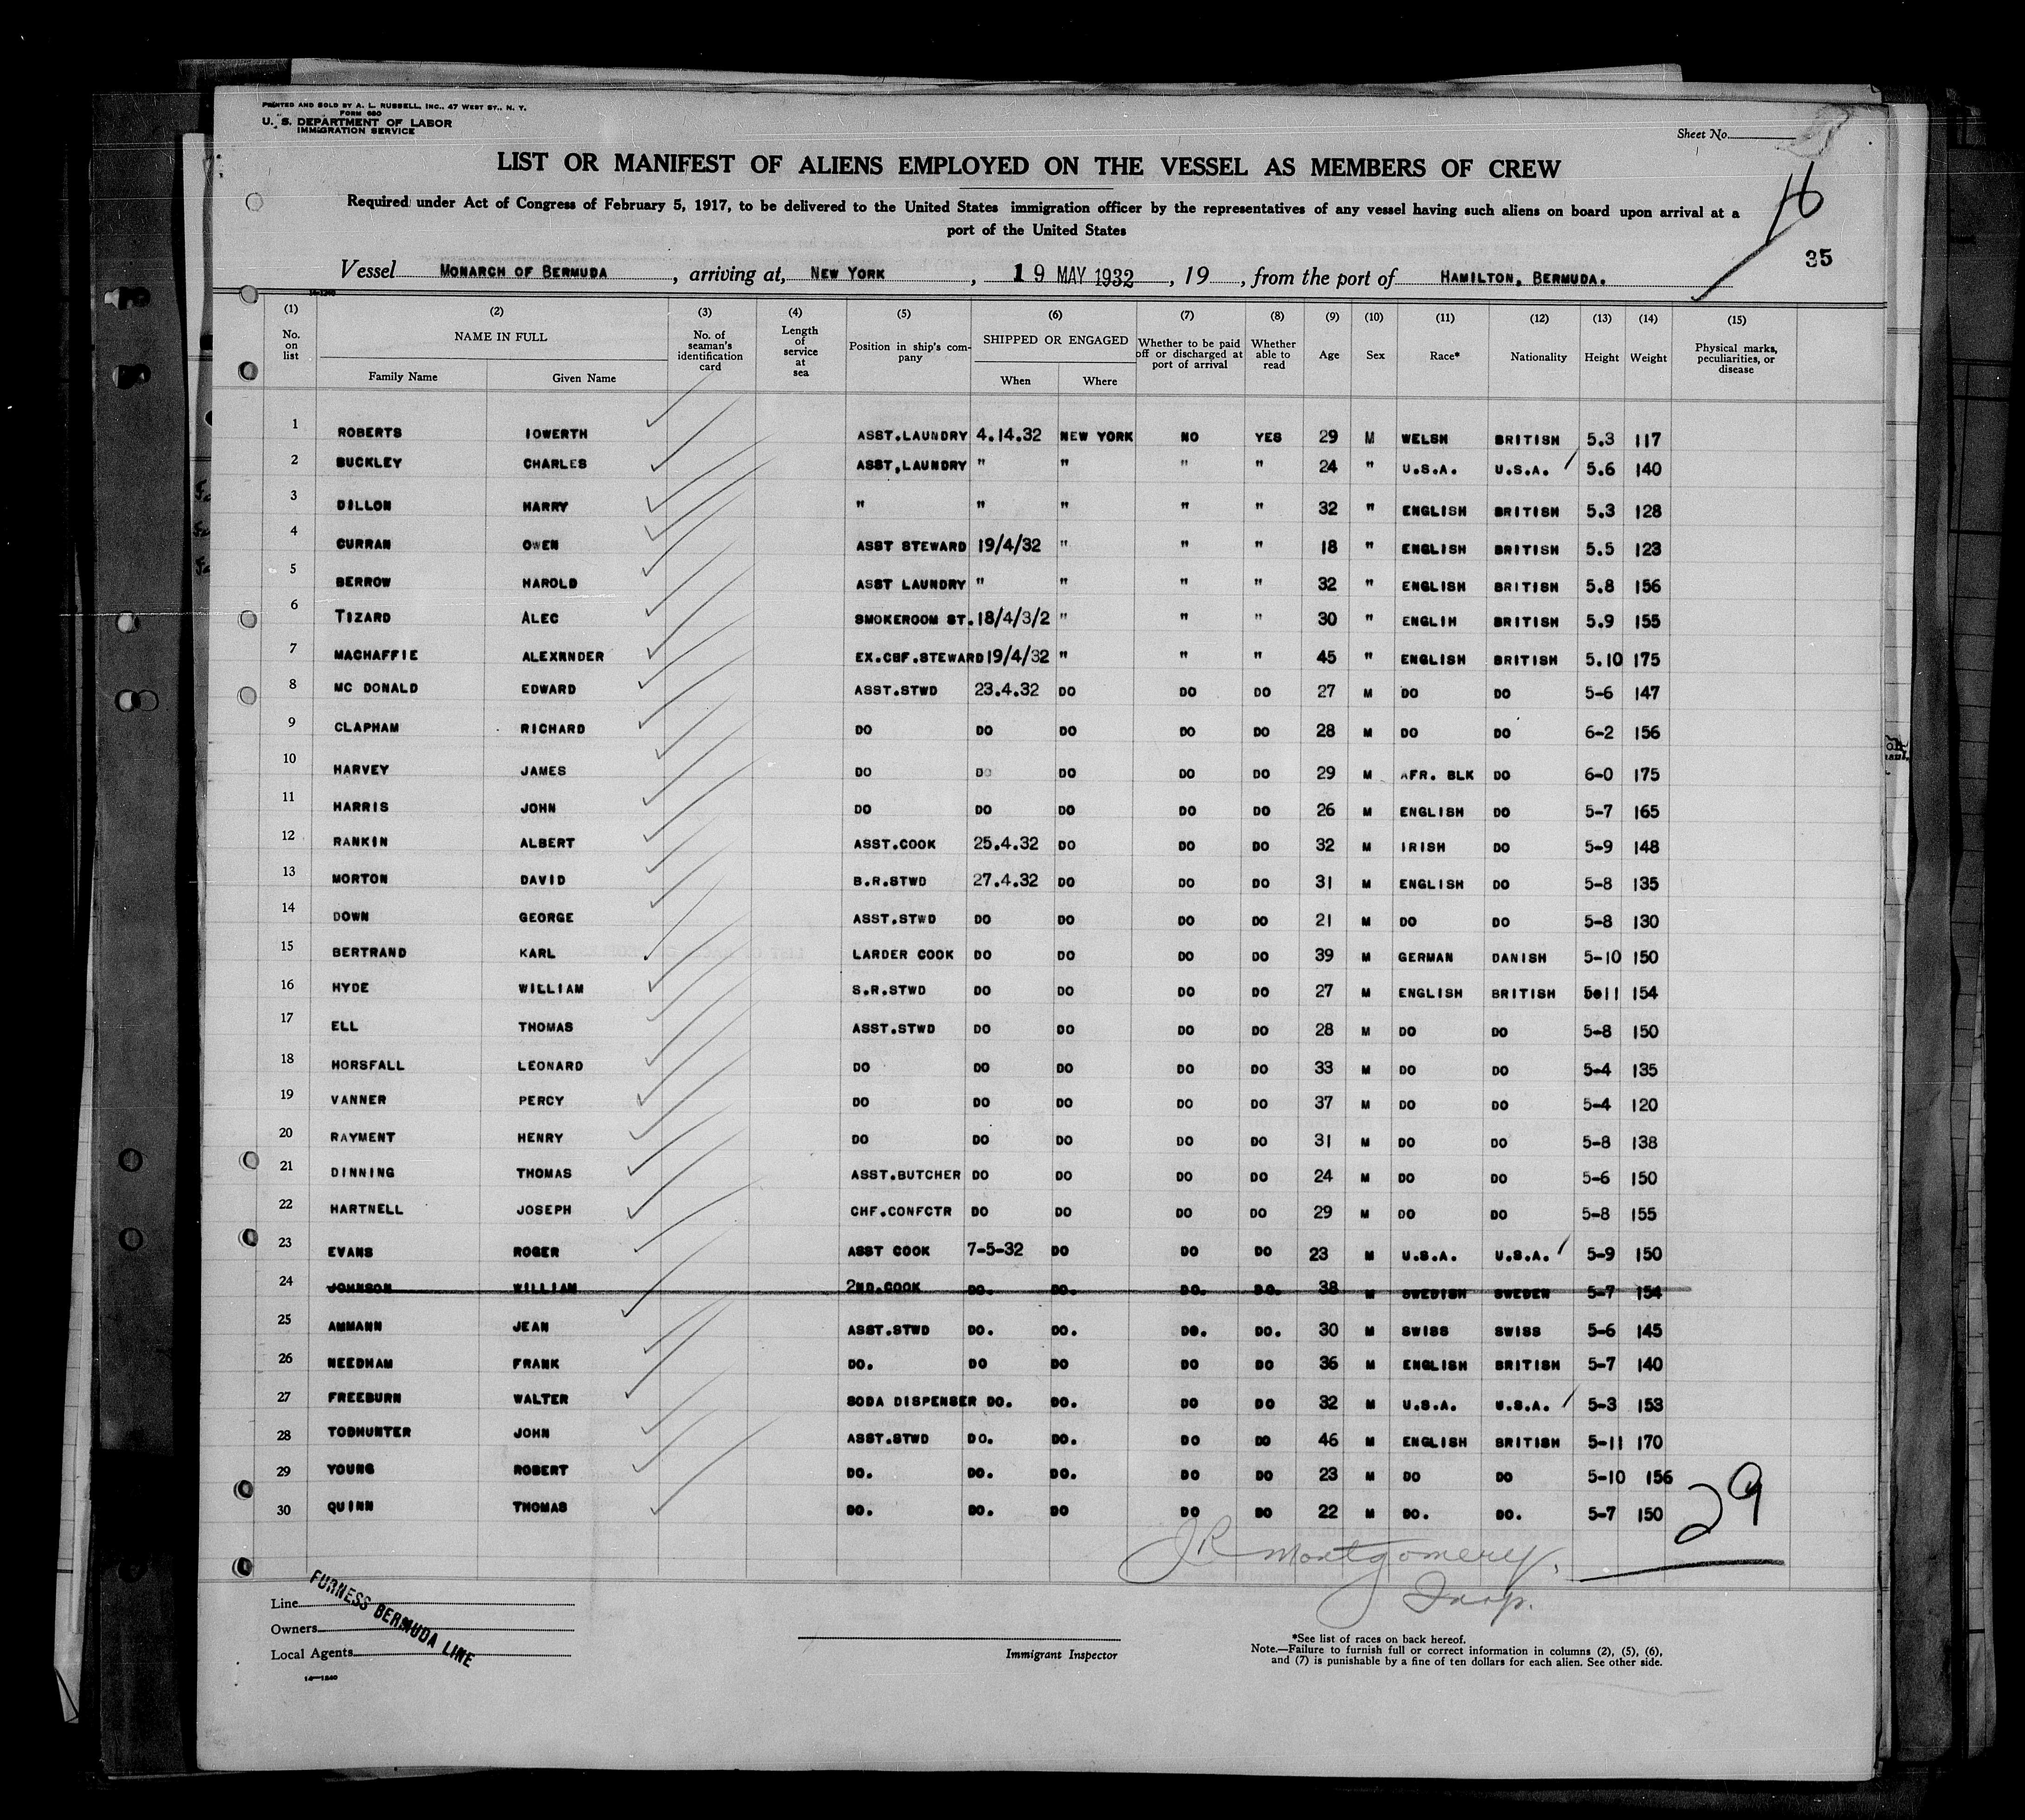 PRINTED AND SOLD BY A. L. RUSSELL, INC., 47 WEST ST., N. Y.
FORM 680
U. S. DEPARTMENT OF LABOR
IMMIGRATION SERVICE
Sheet No.
LIST OR MANIFEST OF ALIENS EMPLOYED ON THE VESSEL AS MEMBERS OF CREW
Required under Act of Congress of February 5, 1917, to be delivered to the United States immigration officer by the representatives of any vessel having such aliens on board upon arrival at a
port of the United States
16
35
Vessel MONARCH OF BERMUDA, arriving at, NEW YORK, 19 MAY 1932, 19, from the port of HAMILTON, BERMUDA.
14-1240
(1) (2) (3) (4) (5) (6) (7) (8) (9) (10) (11) (12) (13) (14) (15)
No. on list NAME IN FULL Family Name Given Name No. of seaman's identification card Length of service at sea Position in ship's company SHIPPED OR ENGAGED When Where Whether to be paid off or discharged at port of arrival Whether able to read Age Sex Race* Nationality Height Weight Physical marks, peculiarities, or disease
1 ROBERTS IOWERTH ASST.LAUNDRY 4.14.32 NEW YORK NO YES 29 M WELSH BRITISH 5.3 117
2 BUCKLEY CHARLES ASST,LAUNDRY " " " " 24 " U.S.A. U.S.A. 5.6 140
3 DILLON HARRY " " " " " 32 " ENGLISH BRITISH 5.3 128
4 CURRAN OWEN ASST STEWARD 19/4/32 " " " 18 " ENGLISH BRITISH 5.5 123
5 BERROW HAROLD ASST LAUNDRY " " " " 32 " ENGLISH BRITISH 5.8 156
6 TIZARD ALEC SMOKEROOM ST. 18/4/3/2 " " " 30 " ENGLIH BRITISH 5.9 155
7 MACHAFFIE ALEXNNDER EX.CHF.STEWARD 19/4/32 " " " 45 " ENGLISH BRITISH 5.10 175
8 MC DONALD EDWARD ASST.STWD 23.4.32 DO DO DO 27 M DO DO 5-6 147
9 CLAPHAM RICHARD DO DO DO DO DO 28 M DO DO 6-2 156
10 HARVEY JAMES DO DO DO DO DO 29 M AFR. BLK DO 6-0 175
11 HARRIS JOHN DO DO DO DO DO 26 M ENGLISH DO 5-7 165
12 RANKIN ALBERT ASST.COOK 25.4.32 DO DO DO 32 M IRISH DO 5-9 148
13 MORTON DAVID B.R.STWD 27.4.32 DO DO DO 31 M ENGLISH DO 5-8 135
14 DOWN GEORGE ASST.STWD DO DO DO DO 21 M DO DO 5-8 130
15 BERTRAND KARL LARDER COOK DO DO DO DO 39 M GERMAN DANISH 5-10 150
16 HYDE WILLIAM S.R.STWD DO DO DO DO 27 M ENGLISH BRITISH 5-11 154
17 ELL THOMAS ASST.STWD DO DO DO DO 28 M DO DO 5-8 150
18 HORSFALL LEONARD DO DO DO DO DO 33 M DO DO 5-4 135
19 VANNER PERCY DO DO DO DO DO 37 M DO DO 5-4 120
20 RAYMENT HENRY DO DO DO DO DO 31 M DO DO 5-8 138
21 DINNING THOMAS ASST.BUTCHER DO DO DO DO 24 M DO DO 5-6 150
22 HARTNELL JOSEPH CHF.CONFCTR DO DO DO DO 29 M DO DO 5-8 155
23 EVANS ROGER ASST COOK 7-5-32 DO DO DO 23 M U.S.A. U.S.A. 5-9 150
24 JOHNSON WILLIAM 2ND.COOK DO. DO. DO. DO. 38 M SWEDISH SWEDEN 5-7 154
25 AMMANN JEAN ASST.STWD DO. DO. DO. DO. 30 M SWISS SWISS 5-6 145
26 NEEDHAM FRANK DO. DO DO DO DO 36 M ENGLISH BRITISH 5-7 140
27 FREEBURN WALTER SODA DISPENSER DO. DO. DO DO 32 M U.S.A. U.S.A. 5-3 153
28 TODHUNTER JOHN ASST.STWD DO. DO. DO DO 46 M ENGLISH BRITISH 5-11 170
29 YOUNG ROBERT DO. DO. DO. DO DO 23 M DO DO 5-10 156
30 QUINN THOMAS DO. DO. DO DO DO 22 M DO. DO. 5-7 150
29
J R Montgomery.
Insp.
Line
Owners
Local Agents
FURNESS BERMUDA LINE
14-1240
Immigrant Inspector
*See list of races on back hereof.
Note.—Failure to furnish full or correct information in columns (2), (5), (6),
and (7) is punishable by a fine of ten dollars for each alien. See other side.